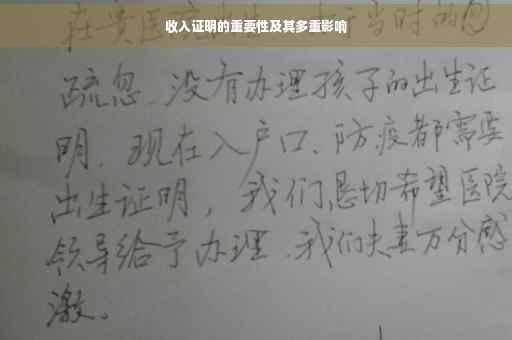 收入证明的重要性及其多重影响
当时的
疏忽、没有办理孩子的出生证
明。现在入户口、防疫都需要
出生证明，我们恳切希望医院
领导给予办理。我们夫妻万分感
激。